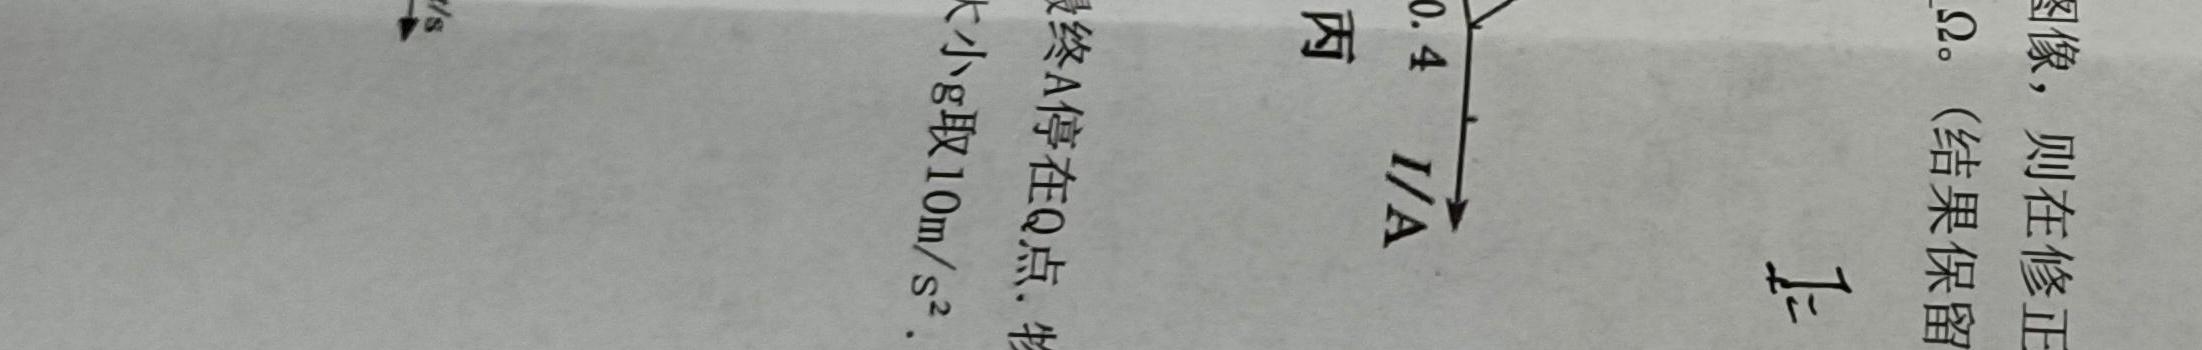 图像，则在修正
Ω。（结果保留
I=
0.4 I/A
丙
最终A停在Q点．物
大小g取10m/s²．
/s